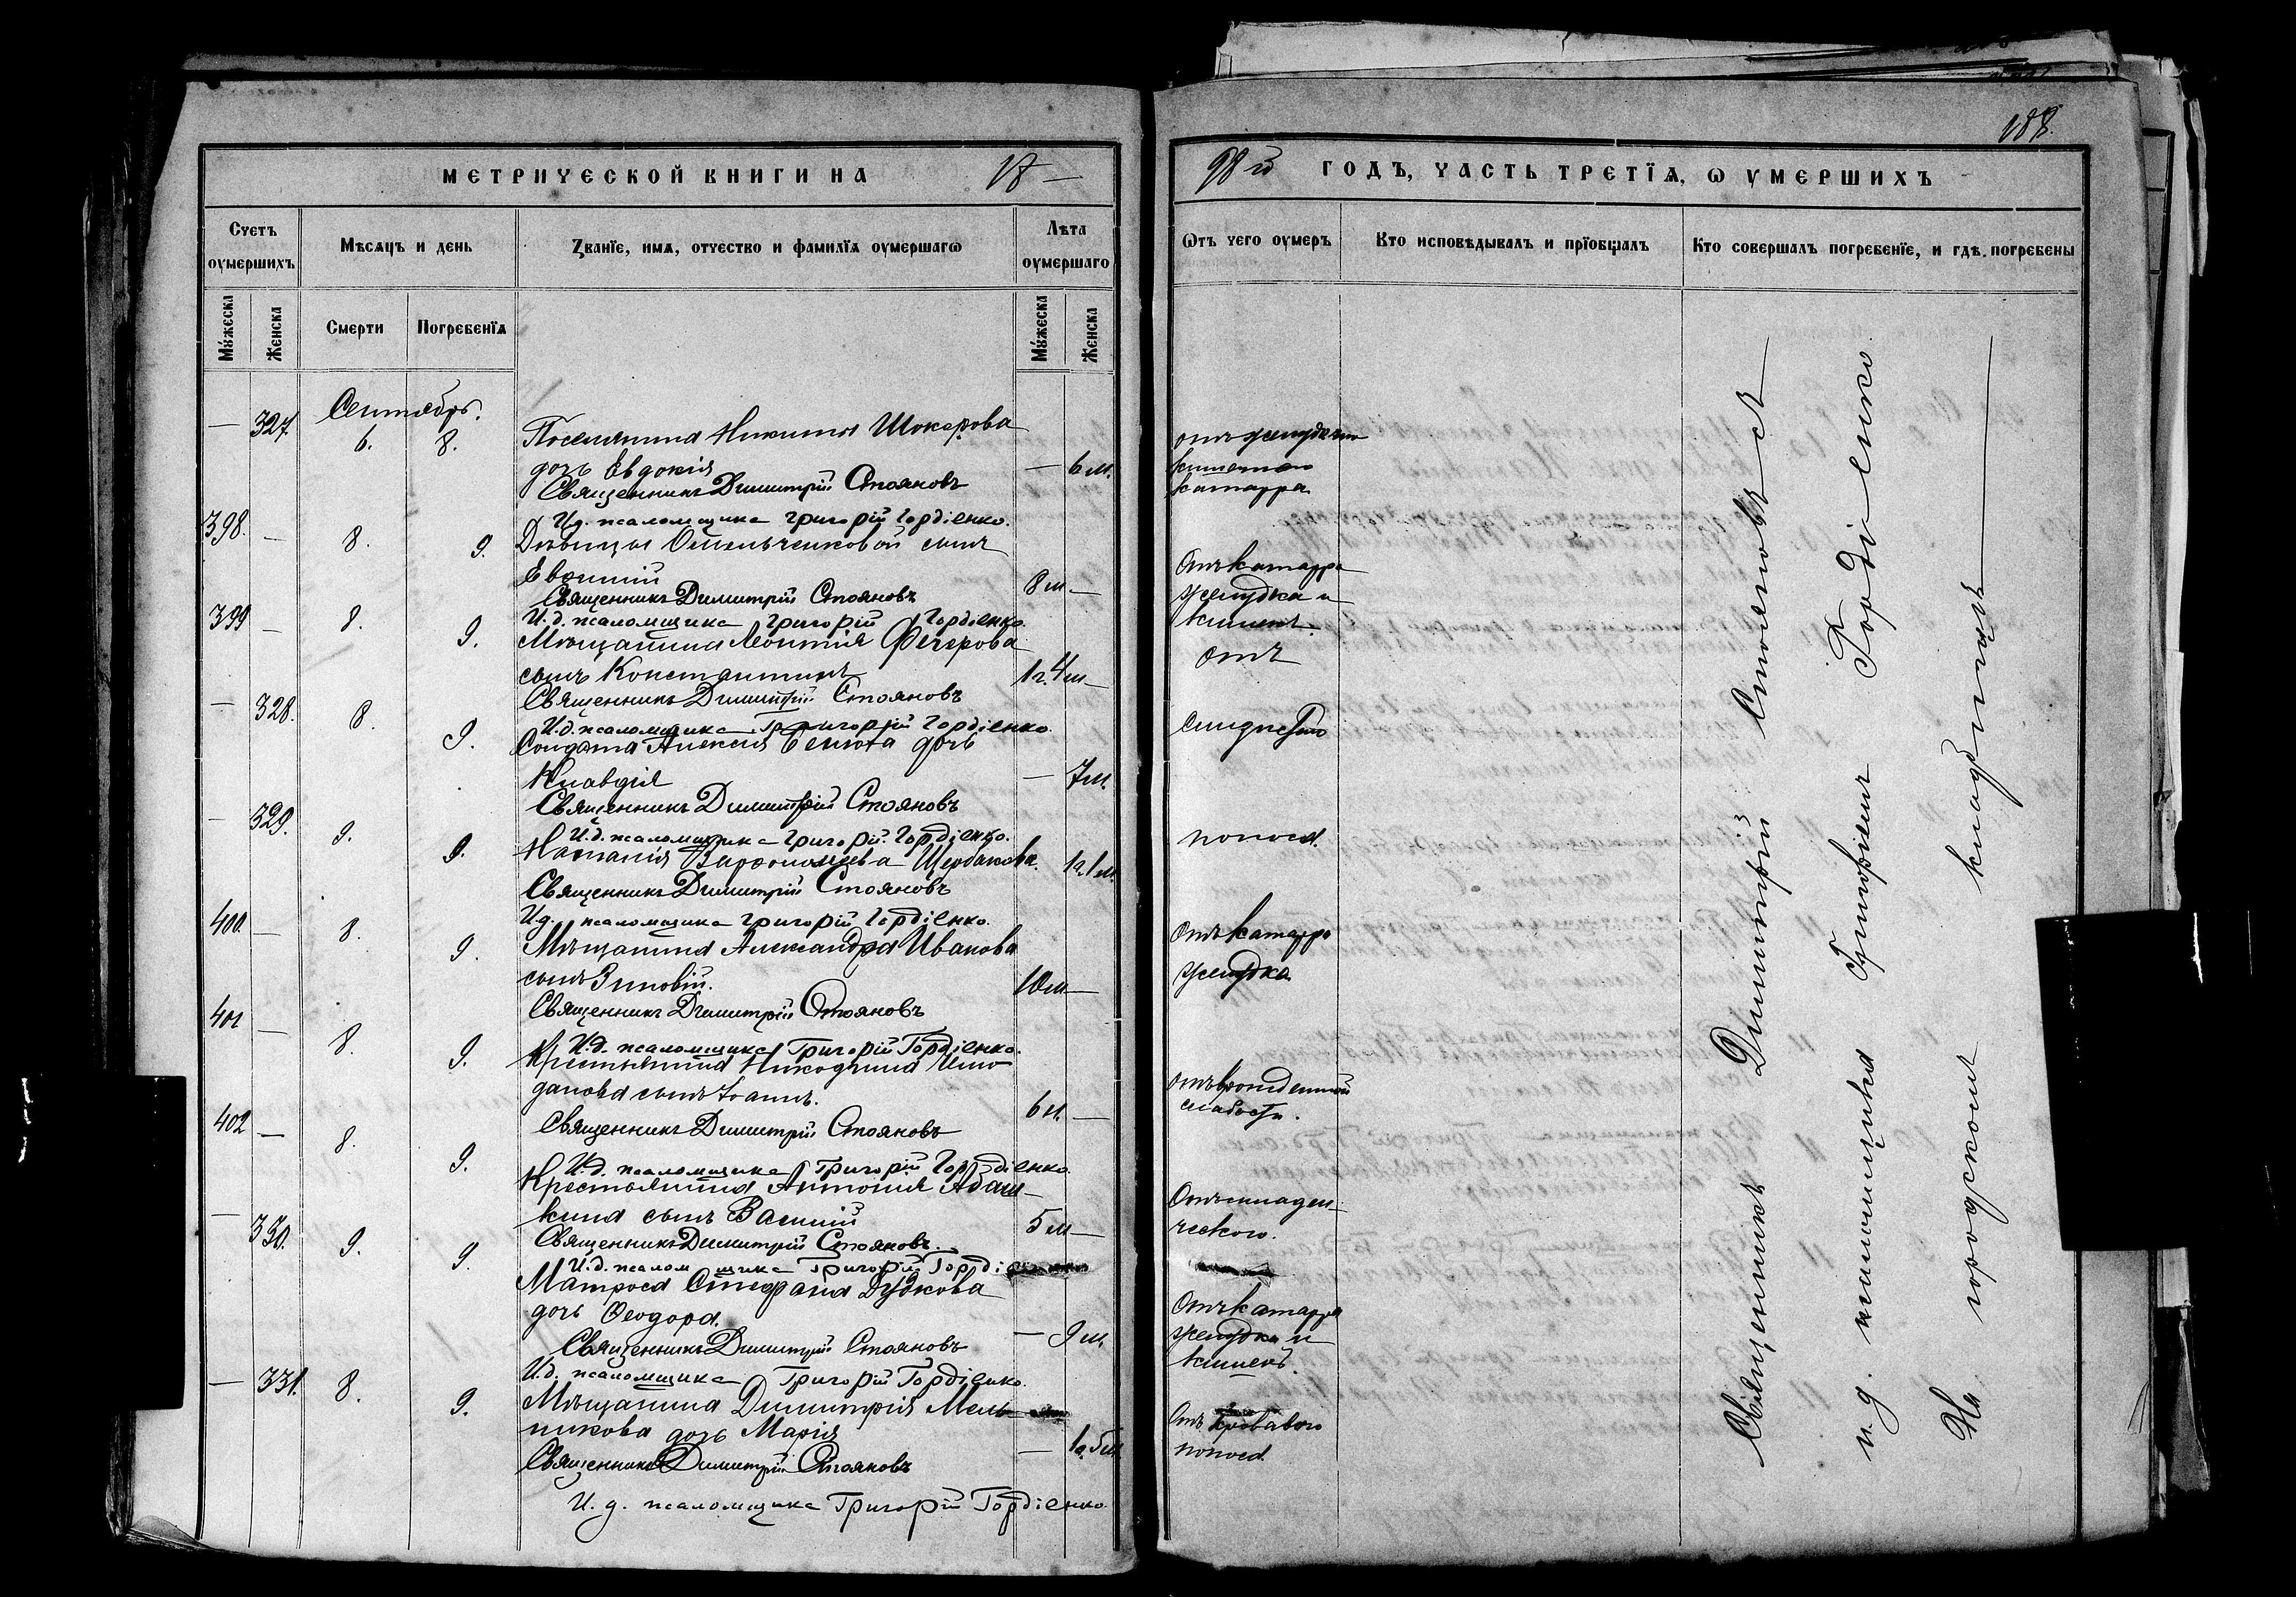 МЕТРИЧЕСКОЙ КНИГИ НА 18 —
Счетъ оумершихъ
Мѣсяцъ и день
Званїе, имѧ, отчество и фамилїѧ оумершагѡ
Лѣта оумершаго
Мꙋжеска
Женска
Смерти
Погребенїѧ
Мꙋжеска
Женска
Сентябрь.
— 327. 6. 8. Поселянина Никиты Шокарова
дочь Евдокія — 6 м.
Священникъ Димитрій Стояновъ
И.д. псаломщика Григорій Гордіенко.
398. — 8. 9. Дѣвицы Омельченковой сынъ
Евфимій 8 м. —
Священникъ Димитрій Стояновъ
И.д. псаломщика Григорій Гордіенко
399 — 8. 9. Мѣщанина Леонтія
сынъ Константинъ 1 г. 4 м —
Священникъ Димитрій Стояновъ
И.д. псаломщика Григорій Гордіенко
— 328. 8. 9. Солдата Алексія дочь
Клавдія — 7 м.
Священникъ Димитрій Стояновъ
И.д. псаломщика Григорій Гордіенко.
— 329. 9. 9. Наталія Варфоломеева Щербакова. 1 г. 1 м.
Священникъ Димитрій Стояновъ
И.д. псаломщика Григорій Гордіенко.
400. — 8. 9. Мѣщанина Александра Иванова
сынъ Зиновій. 10 м —
Священникъ Димитрій Стояновъ
И.д. псаломщика Григорій Гордіенко.
401 — 8. 9. Крестьянина Никодима
сынъ Іоаннъ. 6 м. —
Священникъ Димитрій Стояновъ
И.д. псаломщика Григорій Гордіенко.
402 — 8. 9. Крестьянина Антонія Абаш-
кина сынъ Василій 5 м —
Священникъ Димитрій Стояновъ.
И.д. псаломщика Григорій
— 330. 9. 9. Матроса Стефана Дубкова
дочь Ѳеодора. — 9 м.
Священникъ Димитрій Стояновъ
И.д. псаломщика Григорій Гордіенко.
— 331. 8. 9. Мѣщанина Димитрія Мель-
никова дочь Марія — 1 г. 5 м.
Священникъ Димитрій Стояновъ
И.д. псаломщика Григорій Гордіенко.
188.
98 й ГОДЪ, ЧАСТЬ ТРЕТЇѦ, Ѡ ОУМЕРШИХЪ
Ѿъ чего оумеръ
Кто исповѣдывалъ и прїобщалъ
Кто совершалъ погребенїе, и гдѣ погребены
отъ желудочно
кишечнаго
катарра
Отъ катарра
желудка и
кишекъ.
отъ
понос.
Отъ катарра
желудка
отъ врожденной
слабости.
Отъ младен-
ческаго.
Отъ катарра
желудка и
кишекъ.
Отъ кроваваго
поноса.
Священникъ Димитрій Стояновъ съ
и.д. псаломщика Григоріемъ Гордіенко.
На городскомъ кладбищѣ